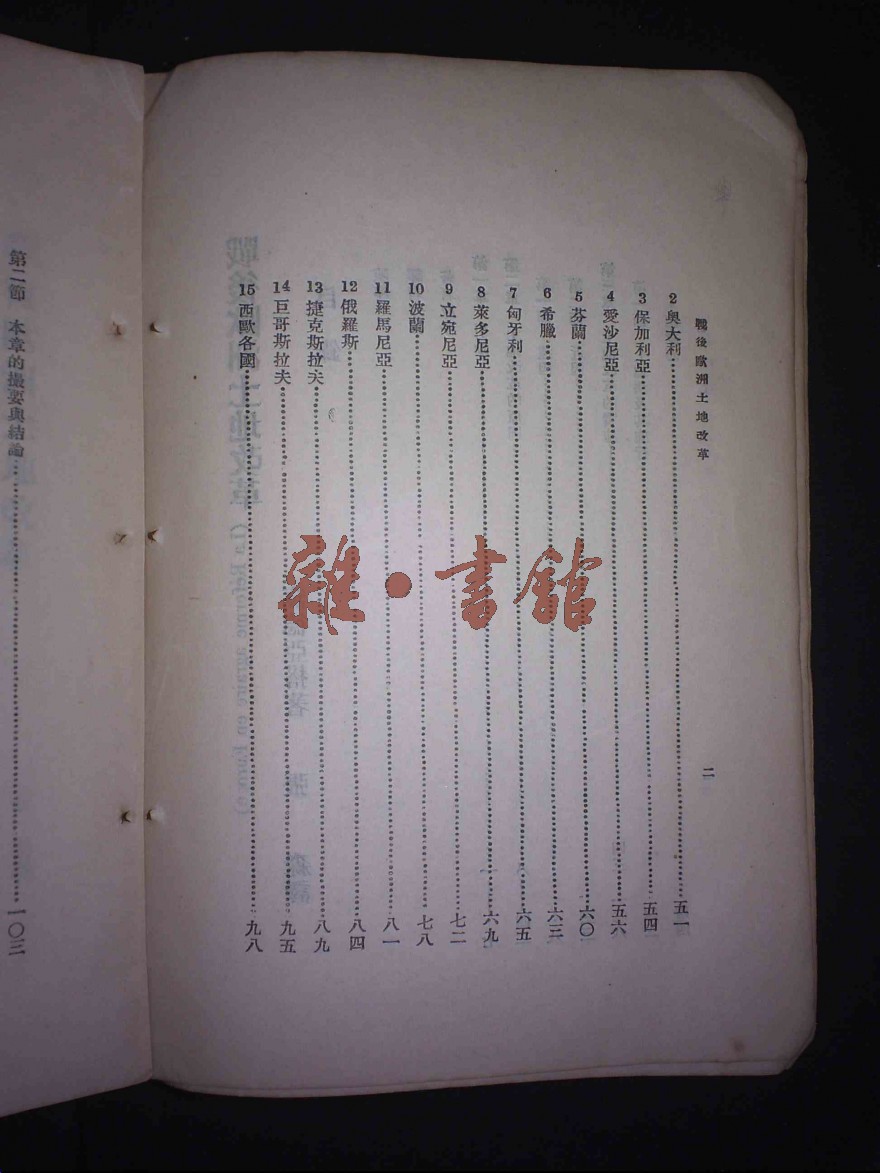 戰後歐洲土地改革
二
2 奧大利……五一
3 保加利亞……五四
4 愛沙尼亞……五六
5 芬蘭……六〇
6 希臘……六三
7 匈牙利……六五
8 萊多尼亞……六九
9 立宛尼亞……七二
10 波蘭……七八
11 羅馬尼亞……八一
12 俄羅斯……八四
13 捷克斯拉夫……八九
14 巨哥斯拉夫……九五
15 西歐各國……九八
第二節 本章的撮要與結論……一〇三
雜·書館